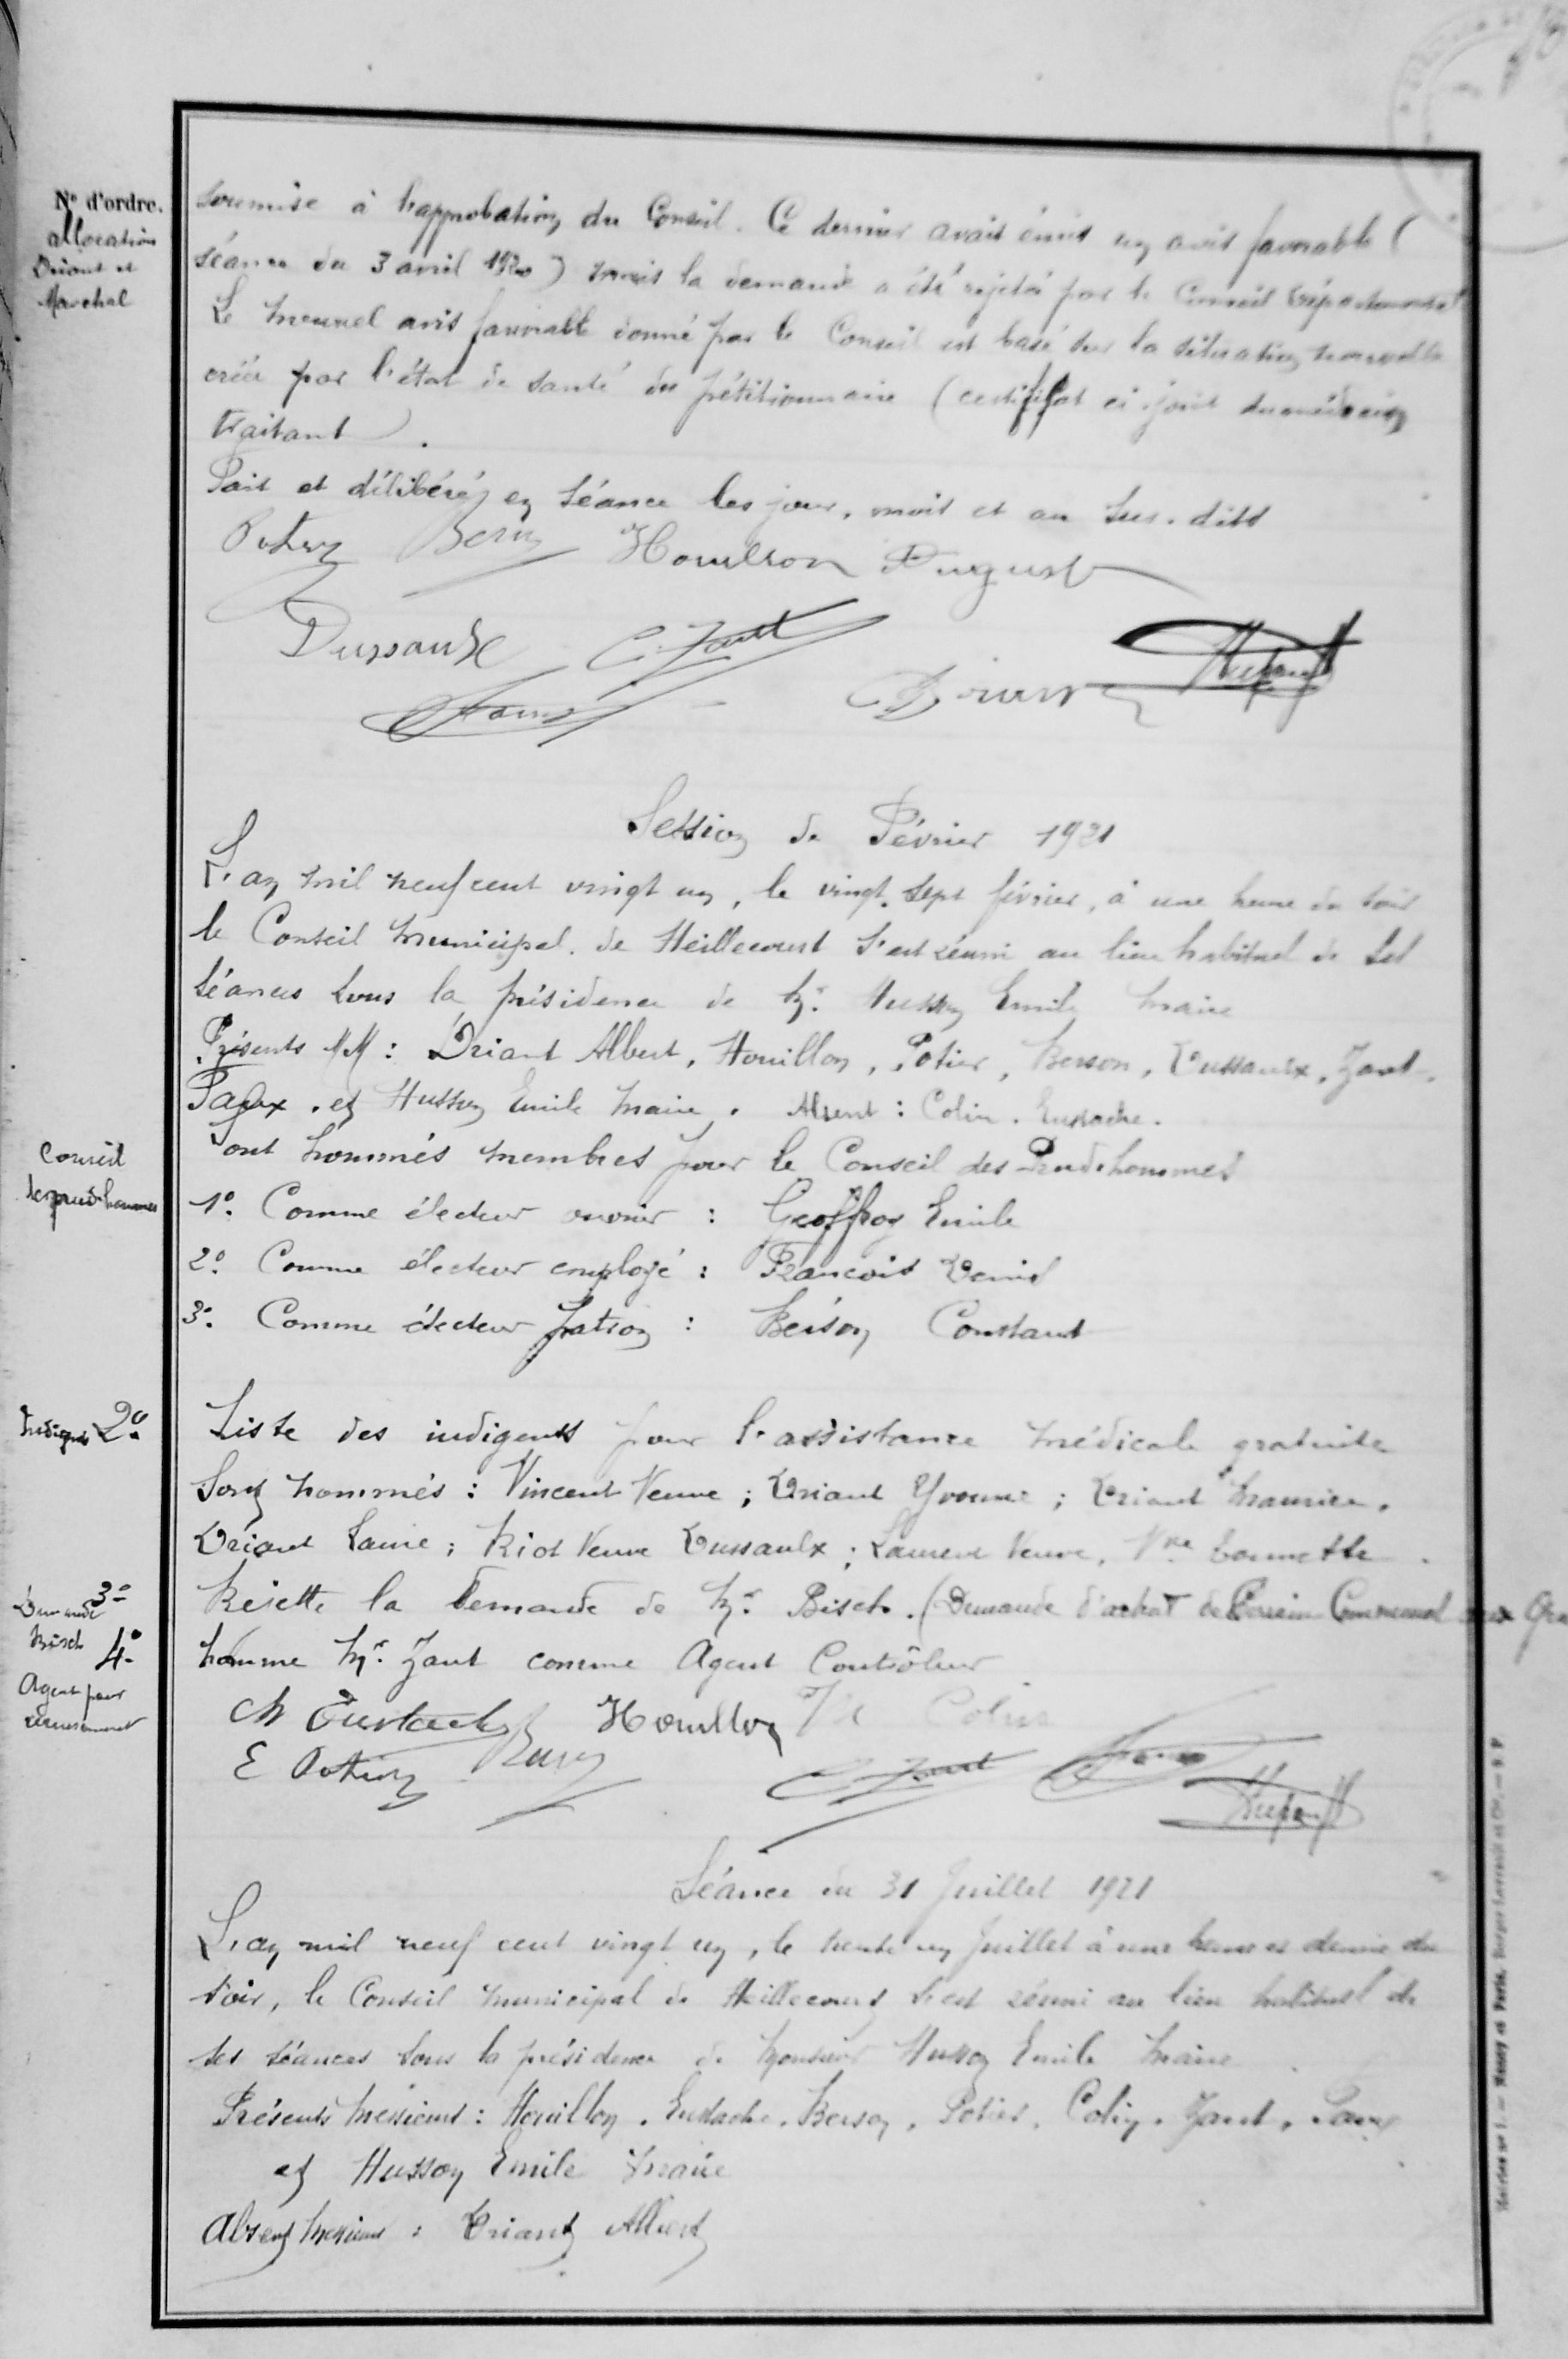 N° d'ordre.
allocation
Driant et
Marchal
soumise à l'approbation du Conseil. Ce dernier avait émis un avis favorable (
séance du 3 avril 1920) mais la demande a été rejetée par le Conseil départemental
Le nouvel avis favorable donné par le Conseil est basé sur la situation nouvelle
créée par l'état de santé du pétitionnaire (certificat ci-joint du médecin
traitant).
Fait et délibéré en séance les jour, mois et an sus-dits
Potier Berson Houillon August
Dussaulx C. Jant
Driant
Session de Février 1921
L'an mil neuf cent vingt un, le vingt-sept février, à une heure du soir
le Conseil Municipal de Heillecourt s'est réuni au lieu habituel de ses
séances sous la présidence de Mr. Husson Emile Maire
Présents MM : Driant Albert, Houillon, Potier, Berson, Dussaulx, Jant,
et Husson Emile Maire. Absent : Colin. Eustache.
Conseil
des prud'hommes
Sont nommés membres pour le Conseil des Prudhommes
1°. Comme électeur ouvrier : Geoffroy Emile
2°. Comme électeur employé : Francois Denis
3°. Comme électeur patron : Berson Constant
Indigents 2°
Liste des indigents pour l'assistance médicale gratuite
Sont nommés : Vincent Veuve ; Driant Yvonne ; Driant Maurice.
Driant Laure ; Riot Veuve Dussaulx ; Laurent Veuve, Vve
3°
Demande
Bisch
Rejette la demande de Mr. Bisch. (Demande d'achat de Terrain Communal
4°
Agent pour
nomme Mr. Jant comme Agent Contrôleur
Ch Eustache Houillon Colin
E Potier Berson C Jant
Séance du 31 Juillet 1921
L'an mil neuf cent vingt un, le trente un Juillet à une heure et demie du
soir, le Conseil Municipal de Heillecourt s'est réuni au lieu habituel de
ses séances sous la présidence de Monsieur Husson Emile Maire
Présents Messieurs : Houillon. Eustache. Berson, Potier, Colin. Jant,
et Husson Emile Maire
Absent Messieurs : Driant Albert